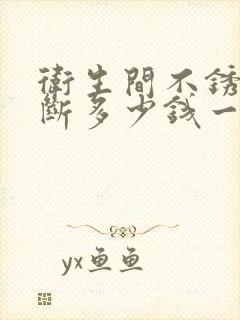 衛生間不銹
斷多少錢一
yx鱼鱼